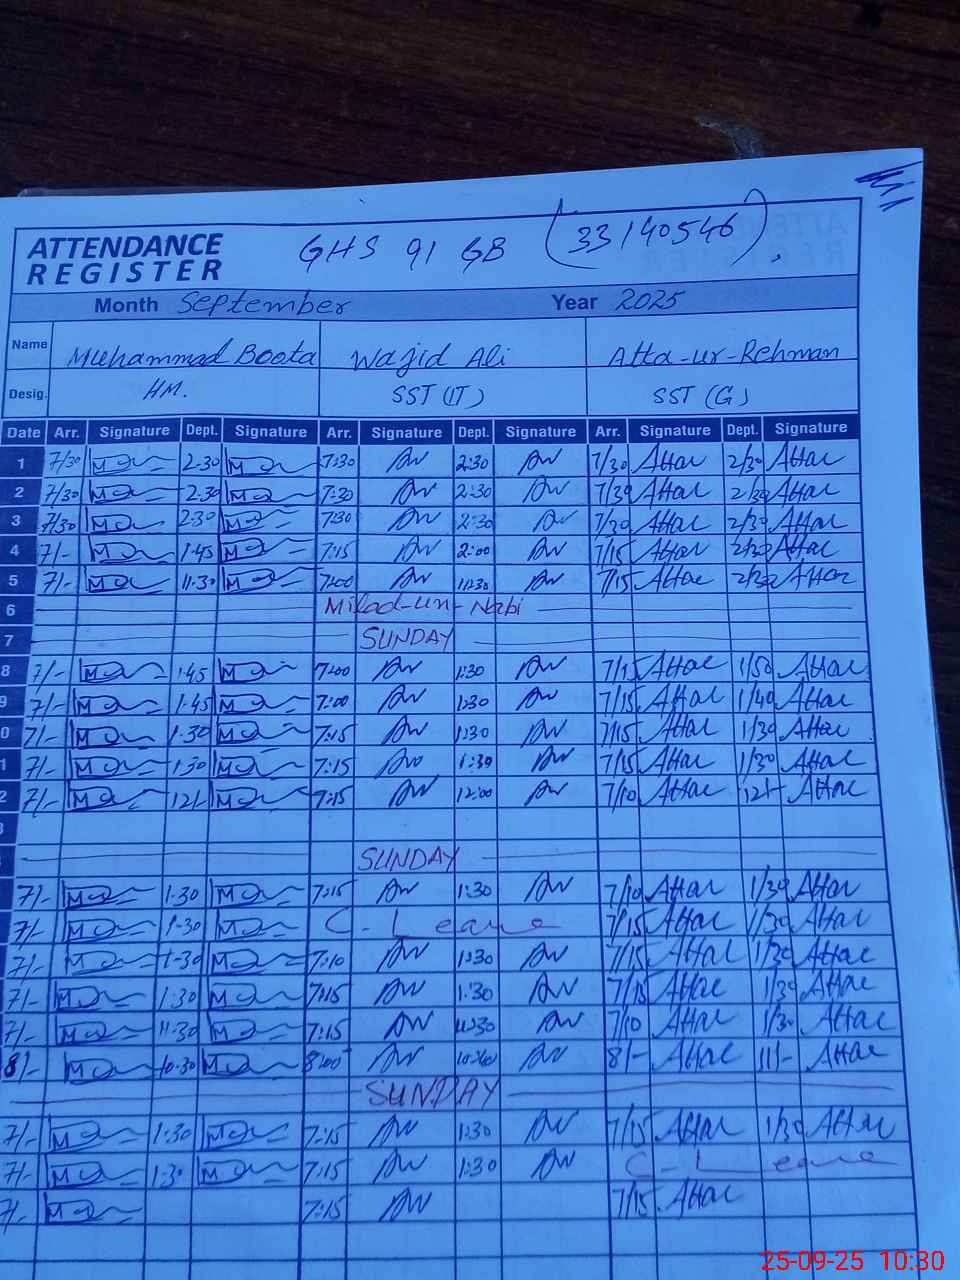 ATTENDANCE REGISTER GHS 91 GB (33140546)
Month September Year 2025
Name Muhammad Boota Wajid Ali Atta-ur-Rehman
Desig. HM. SST (IT) SST (G)
Date Arr. Signature Dept. Signature Arr. Signature Dept. Signature Arr. Signature Dept. Signature
1 7/30 2-30 7:30 2:30 7/30 Attar 2/30 Attar
2 7/30 2:30 7:30 2:30 7/30 Attar 2/30 Attar
3 7/30 2:30 7:30 2:30 7/30 Attar 2/30 Attar
4 7/- 1-45 7:15 2:00 7/15 Attar 2/30 Attar
5 7/- 11-30 7:00 11:30 7/15 Attar 2/30 Attar
6 Milad-un-Nabi
7 SUNDAY
8 7/- 1-45 7:00 1:30 7/15 Attar 1/50 Attar
9 7/- 1-45 7:00 1:30 7/15 Attar 1/40 Attar
0 7/- 1-30 7:15 1:30 7/15 Attar 1/30 Attar
1 7/- 1:30 7:15 1:30 7/15 Attar 1/30 Attar
2 7/- 12/- 7:15 12:00 7/10 Attar 12/- Attar
3
SUNDAY
7/- 1-30 7:15 1:30 7/10 Attar 1/30 Attar
7/- 1-30 C-Leave 7/15 Attar 1/30 Attar
7/- 1-30 7:10 1:30 7/15 Attar 1/30 Attar
7/- 1:30 7:15 1:30 7/15 Attar 1/30 Attar
7/- 11:30 7:15 11:30 7/10 Attar 1/30 Attar
8/- 10-30 8:00 10:40 8/- Attar 11/- Attar
SUNDAY
7/- 1:30 7:15 1:30 7/15 Attar 1/30 Attar
7/- 1:30 7:15 1:30 C-Leave
7/- 7:15 7/15 Attar
25-09-25 10:30